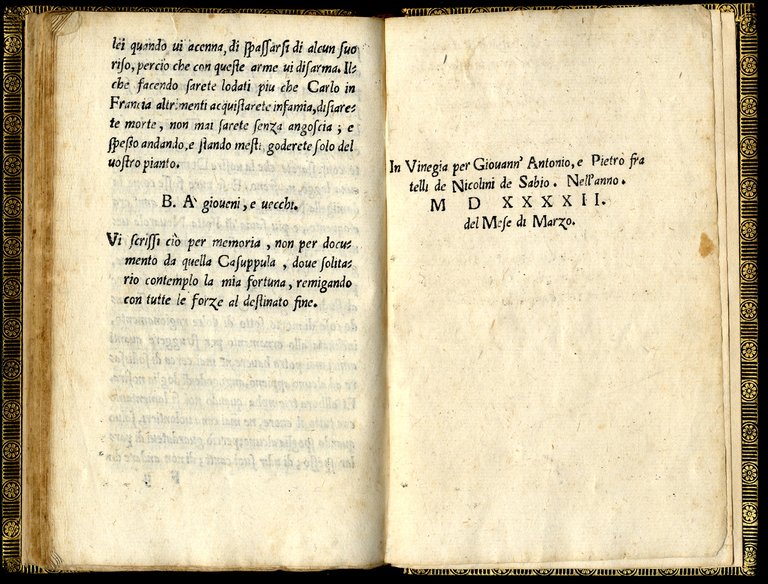 lei quando ui acenna, di ſpaſſarſi di alcun ſuo
riſo, percio che con queſte arme ui diſarma. Il
che facendo ſarete lodati piu che Carlo in
Francia altrimenti acquiſtarete infamia, diſiare
te morte, non mai ſarete ſenza angoſcia ; e
ſpeſſo andando, e ſtando meſti, goderete ſolo del
uoſtro pianto.
B. A' gioueni, e uecchi.
Vi ſcriſſi ciò per memoria, non per docu
mento da quella Caſuppula, doue ſolita
rio contemplo la mia fortuna, remigando
con tutte le forze al deſtinato fine.
In Vinegia per Giouann' Antonio, e Pietro fra
telli de Nicolini de Sabio. Nell'anno.
M D XXXXII.
del Meſe di Marzo.